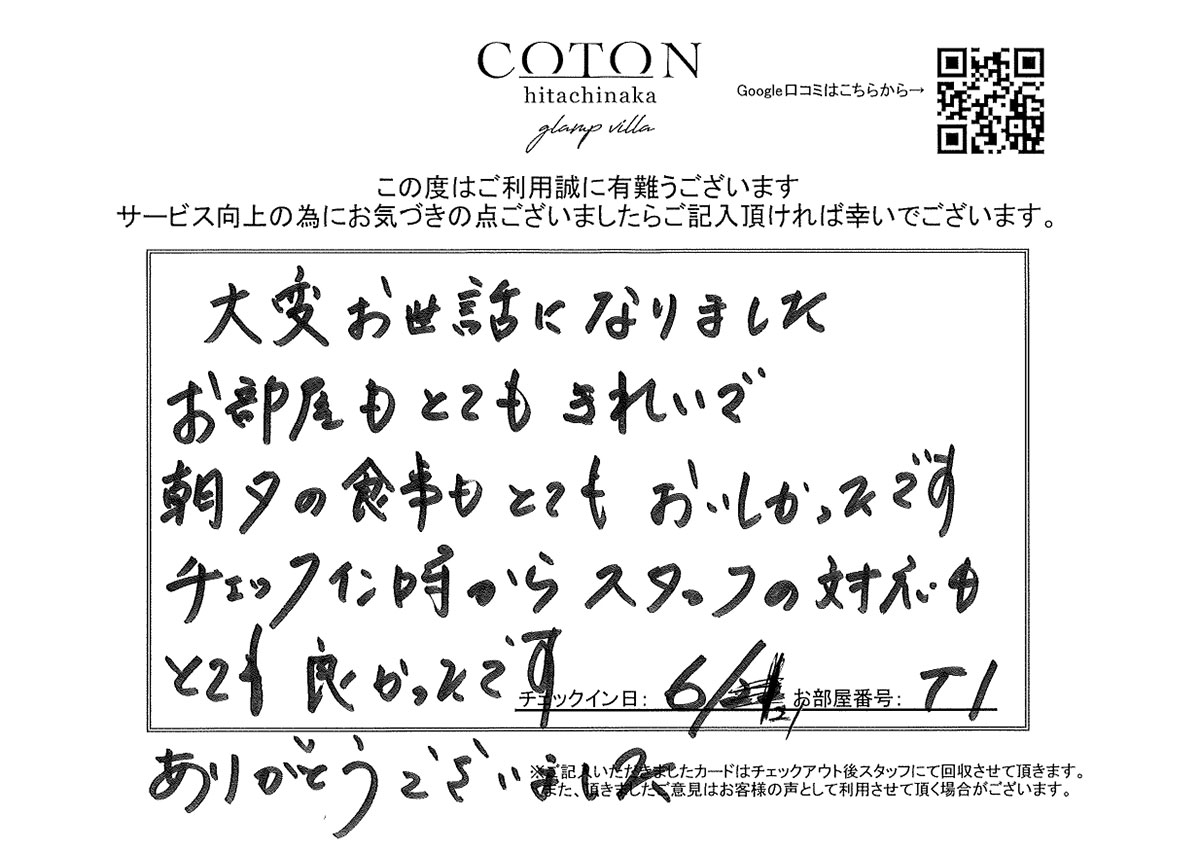 COTON
hitachinaka
glamp villa
Google口コミはこちらから→
この度はご利用誠に有難うございます
サービス向上の為にお気づきの点ございましたらご記入頂ければ幸いでございます。
大変お世話になりました
お部屋もとてもきれいで
朝夕の食事もとてもおいしかったです
チェックイン時からスタッフの対応も
とても良かったです
チェックイン日: 6/ お部屋番号: T1
ありがとうございました
※ご記入いただきましたカードはチェックアウト後スタッフにて回収させて頂きます。
また、頂きましたご意見はお客様の声として利用させて頂く場合がございます。